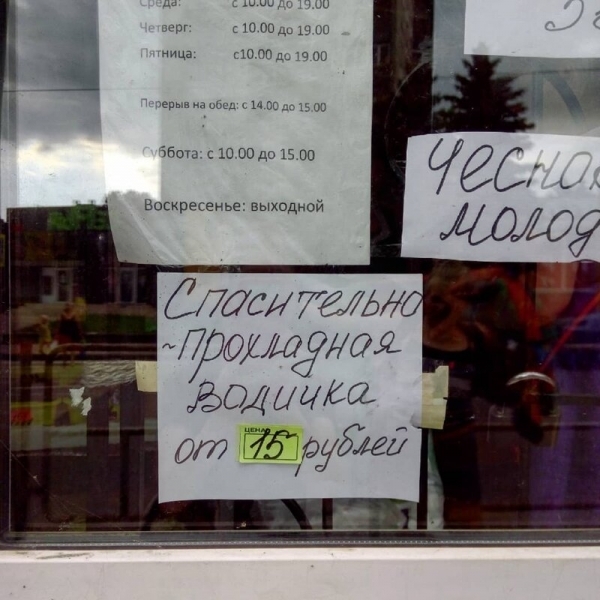 Среда: с 10.00 до 19.00
Четверг: с 10.00 до 19.00
Пятница: с10.00 до 19.00
Перерыв на обед: с 14.00 до 15.00
Суббота: с 10.00 до 15.00
Воскресенье: выходной
Чесная
молод
Спасительно
-прохладная
водичка
от ЦЕНА 15 рублей